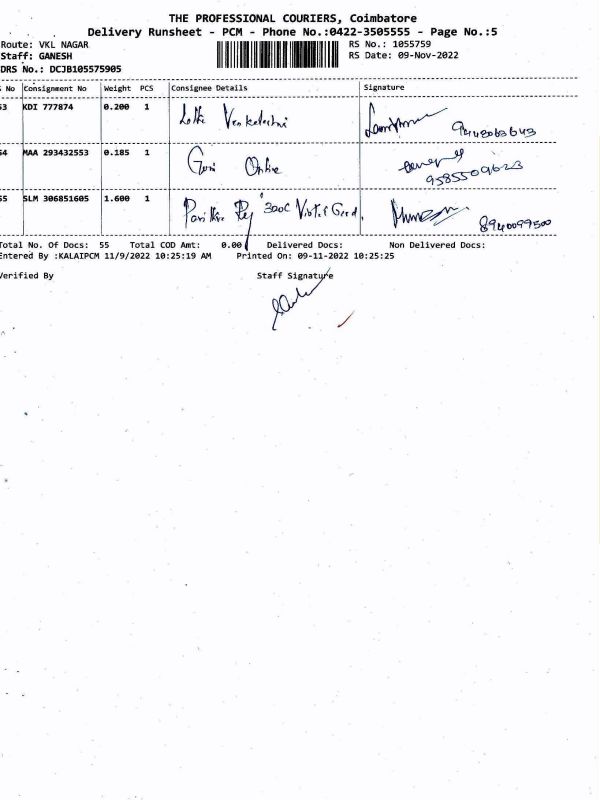 THE PROFESSIONAL COURIERS, Coimbatore
Delivery Runsheet - PCM - Phone No.:0422-3505555 - Page No.:5
Route: VKL NAGAR RS No.: 1055759
Staff: GANESH RS Date: 09-Nov-2022
DRS No.: DCJB105575905
No Consignment No Weight PCS Consignee Details Signature
53 KDI 777874 0.200 1
54 MAA 293432553 0.185 1 9585509623
55 SLM 306851605 1.600 1 8940099500
Total No. Of Docs: 55 Total COD Amt: 0.00 Delivered Docs: Non Delivered Docs:
Entered By :KALAIPCM 11/9/2022 10:25:19 AM Printed On: 09-11-2022 10:25:25
Verified By Staff Signature